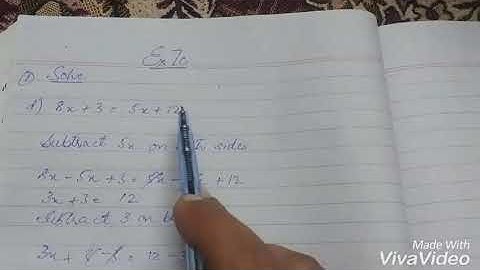 Ex 7c
① Solve
d) 8x + 3 = 5x + 12
Subtract 5x on sides
8x - 5x + 3 = 5x - + 12
3x + 3 = 12
Subtract 3 in
3x + 3 - 3 = 12 -
Made With
VivaVideo